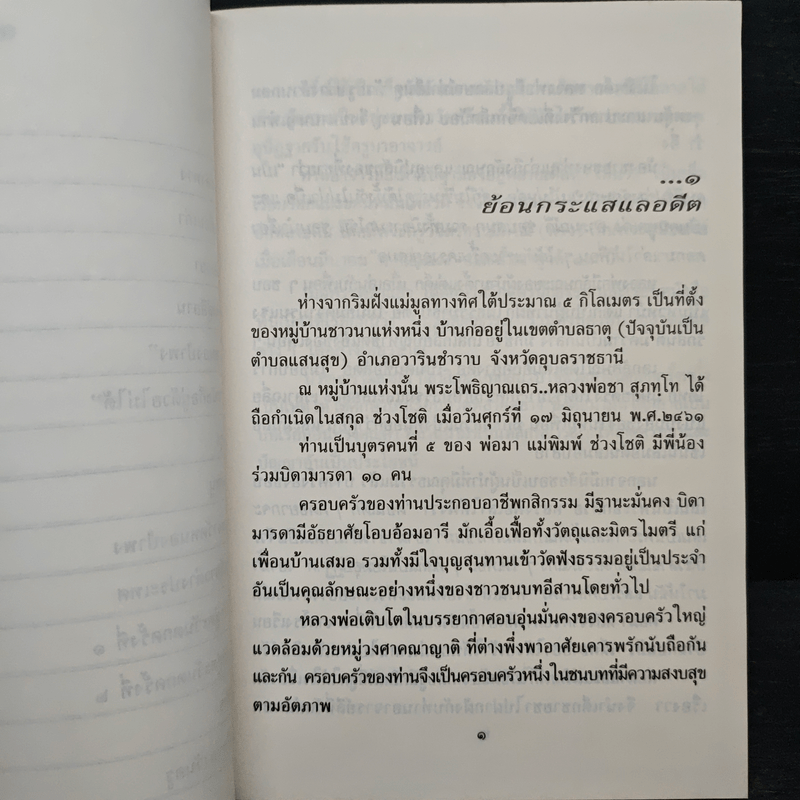 ...๑
ย้อนกระแสแลอดีต
ห่างจากริมฝั่งแม่มูลทางทิศใต้ประมาณ ๕ กิโลเมตร เป็นที่ตั้ง
ของหมู่บ้านชาวนาแห่งหนึ่ง บ้านก่ออยู่ในเขตตำบลธาตุ (ปัจจุบันเป็น
ตำบลแสนสุข) อำเภอวารินชำราบ จังหวัดอุบลราชธานี
ณ หมู่บ้านแห่งนั้น พระโพธิญาณเถร..หลวงพ่อชา สุภทฺโท ได้
ถือกำเนิดในสกุล ช่วงโชติ เมื่อวันศุกร์ที่ ๑๗ มิถุนายน พ.ศ.๒๔๖๑
ท่านเป็นบุตรคนที่ ๕ ของ พ่อมา แม่พิมพ์ ช่วงโชติ มีพี่น้อง
ร่วมบิดามารดา ๑๐ คน
ครอบครัวของท่านประกอบอาชีพกสิกรรม มีฐานะมั่นคง บิดา
มารดามีอัธยาศัยโอบอ้อมอารี มักเอื้อเฟื้อทั้งวัตถุและมิตรไมตรี แก่
เพื่อนบ้านเสมอ รวมทั้งมีใจบุญสุนทานเข้าวัดฟังธรรมอยู่เป็นประจำ
อันเป็นคุณลักษณะอย่างหนึ่งของชาวชนบทอีสานโดยทั่วไป
หลวงพ่อเติบโตในบรรยากาศอบอุ่นมั่นคงของครอบครัวใหญ่
แวดล้อมด้วยหมู่วงศาคณาญาติ ที่ต่างพึ่งพาอาศัยเคารพรักนับถือกัน
และกัน ครอบครัวของท่านจึงเป็นครอบครัวหนึ่งในชนบทที่มีความสงบสุข
ตามอัตภาพ
๑